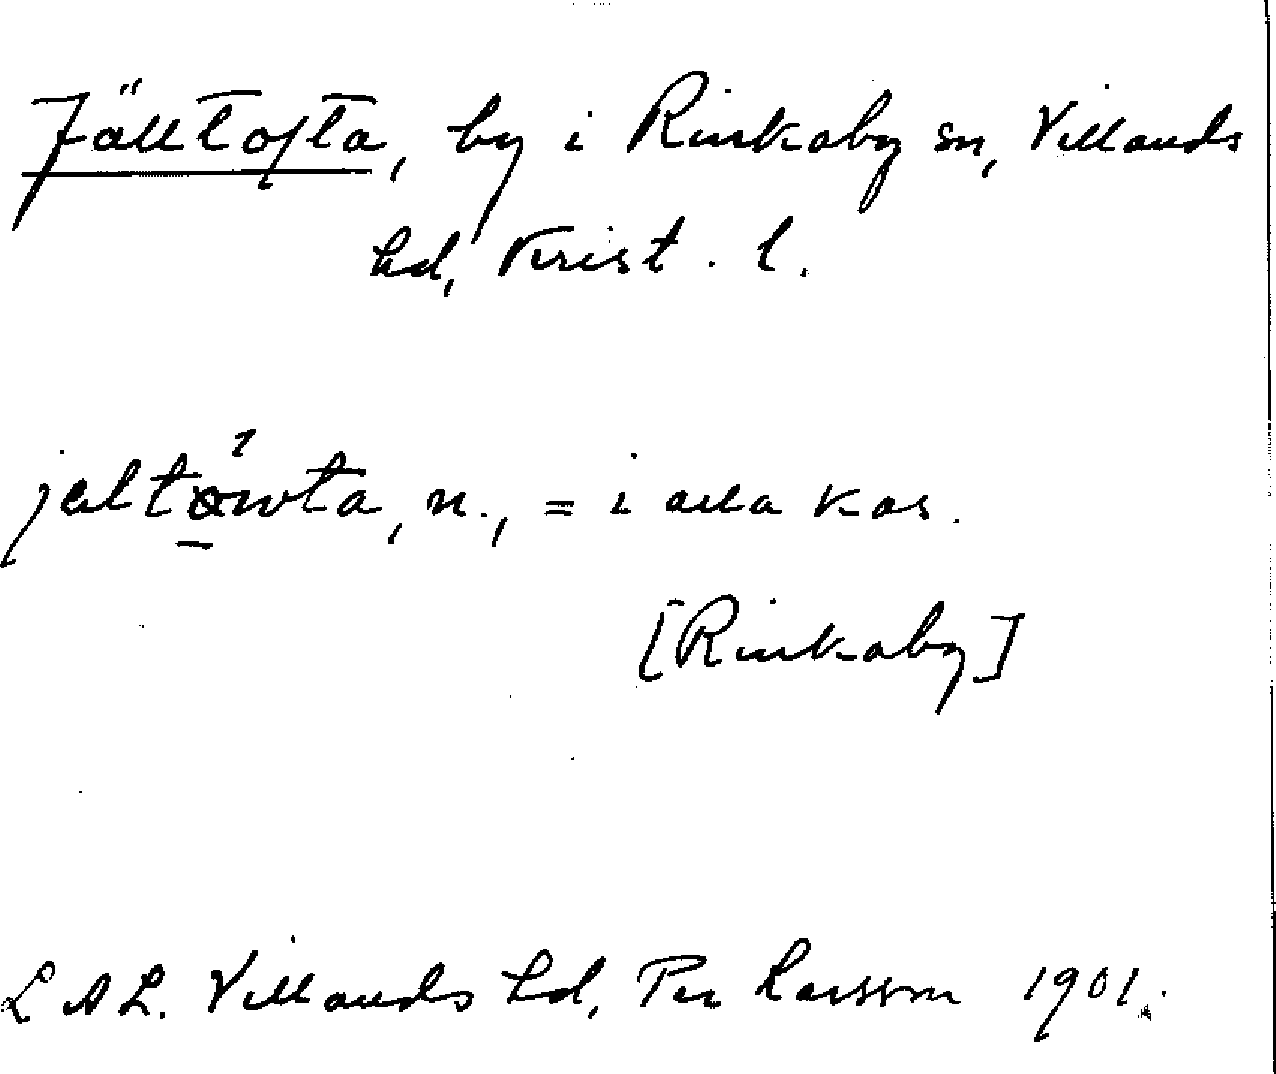 Fälltofta, by i Rinkaby sn, Villands
hd, Krist. l.
jæltåwta, n., = i alla kas.
[Rinkaby]
L A L. Villands hd, Per Larsson 1901.